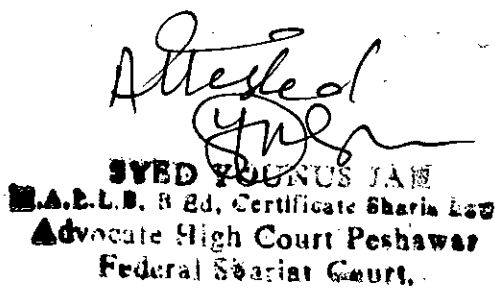 Attested
SYED YOUNUS JAN
M.A.L.L.B. B Ed, Certificate Sharia Law
Advocate High Court Peshawar
Federal Shariat Court,